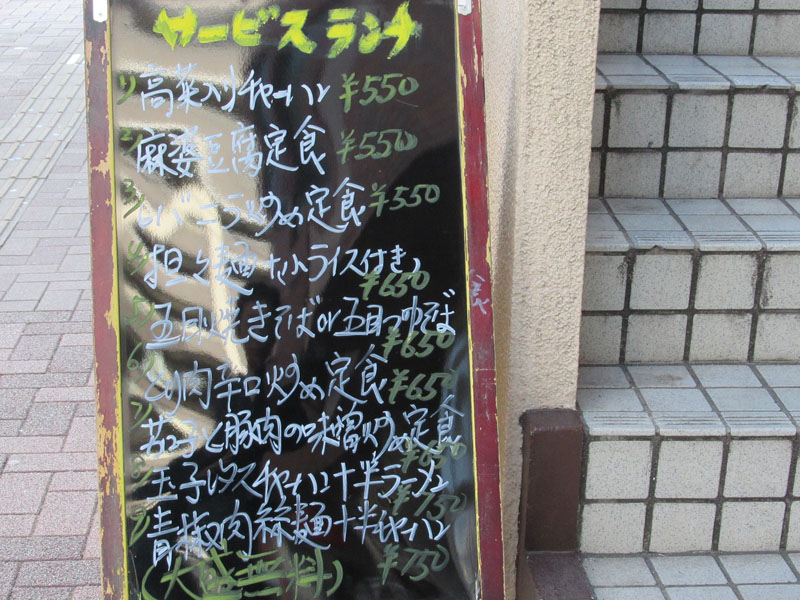 サービスランチ
1) 高菜入りチャーハン ¥550
2) 麻婆豆腐定食 ¥550
3) レバニラ炒め定食 ¥550
4) 担々麺+小ライス付き ¥650
5) 五目焼きそばor五目つゆそば ¥650
6) とり肉辛口炒め定食 ¥650
7) 茄子と豚肉の味噌炒め定食
8) 玉子レタスチャーハン+半ラーメン ¥750
9) 青椒肉絲麺+半チャーハン ¥750
(大盛無料)